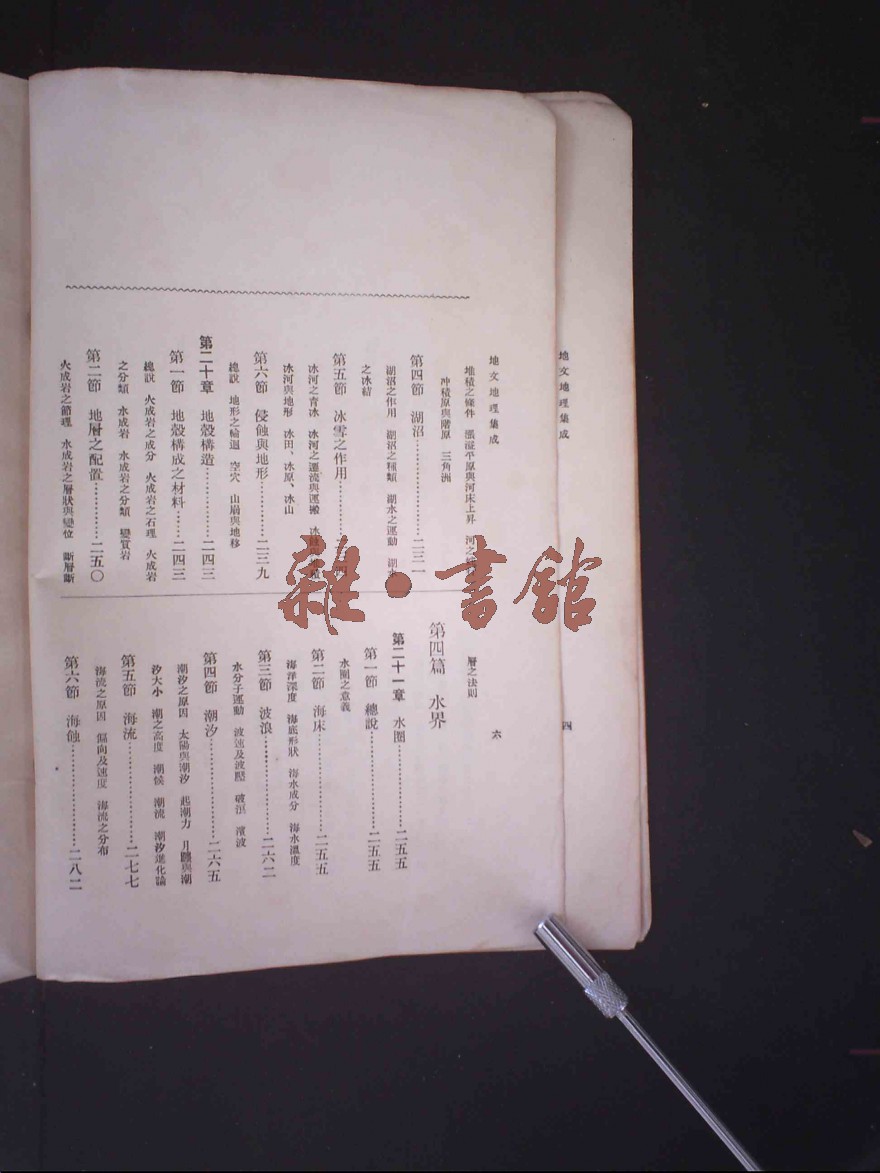 地文地理集成
四
地文地理集成
六
堆積之條件　漲溢平原與河床上昇　河之
冲積原與階原　三角洲
第四節　湖沼…………二三一
湖沼之作用　湖沼之種類　湖水之運動　湖
之冰結
第五節　冰雪之作用
冰河之青冰　冰河之運流與運搬
冰河與地形　冰田、冰原、冰山
第六節　侵蝕與地形…………二三九
總說　地形之輪廻　空穴　山崩與地移
第二十章　地殼構造…………二四三
第一節　地殼構成之材料…………二四三
總說　火成岩之成分　火成岩之石理　火成岩
之分類　水成岩　水成岩之分類　變質岩
第二節　地層之配置…………二五〇
火成岩之節理　水成岩之層狀與變位　斷層斷
層之法則
第四篇　水界
第二十一章　水圈…………二五五
第一節　總說…………二五五
水圈之意義
第二節　海床…………二五五
海洋深度　海底形狀　海水成分　海水溫度
第三節　波浪…………二六二
水分子運動　波速及波壓　破浪　濱波
第四節　潮汐…………二六五
潮汐之原因　太陽與潮汐　起潮力　月齡與潮
汐大小　潮之高度　潮候　潮流　潮汐進化論
第五節　海流…………二七七
海流之原因　偏向及速度　海流之分布
第六節　海蝕…………二八二
雜·書館